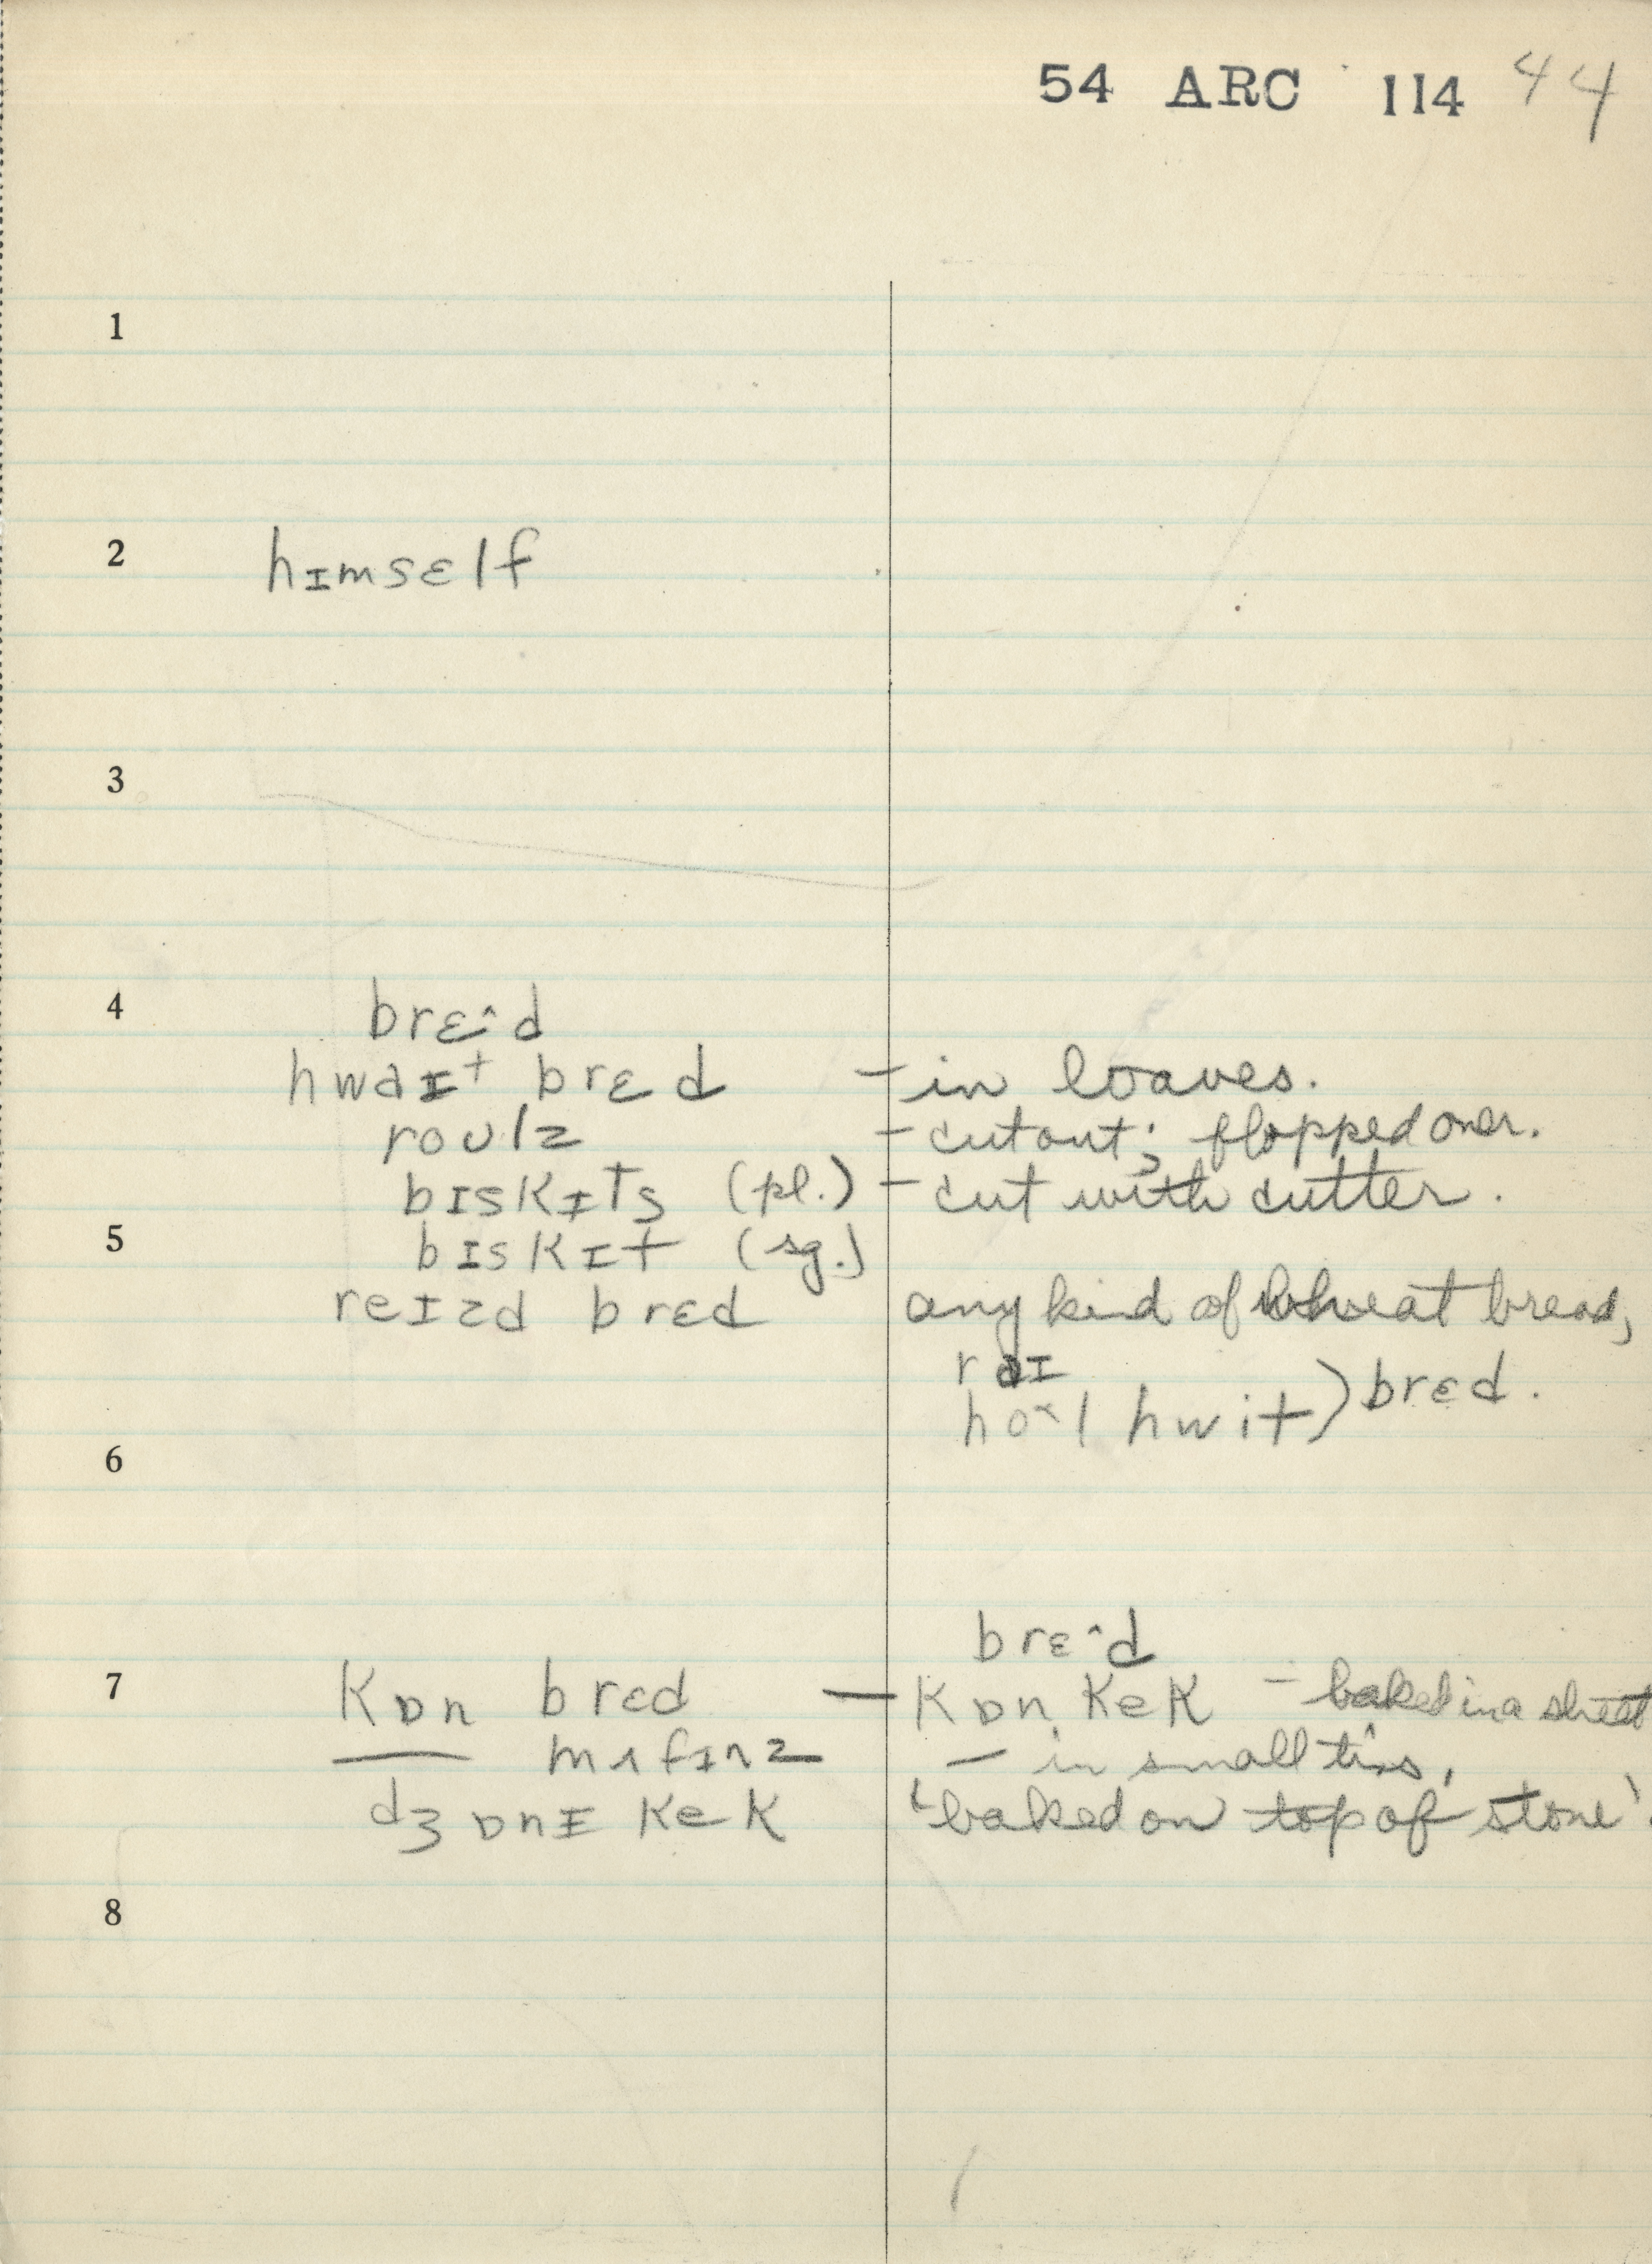 54 ARC 114 44
1
2 hɪmsɛlf
3
4 brɛ^d
hwaɪt brɛd – in loaves.
roʊlz – cut out; flopped over.
bɪskɪts (pl.) – cut with cutter.
5 bɪskɪt (sg.)
reɪzd brɛd any kind of wheat bread,
raɪ
ho^l hwit) brɛd.
6
brɛ^d
7 kɒn brɛd — kɒn kek – baked in a sheet
— mʌfɪnz — in small tins,
dʒɒnɪ kek 'baked on top of stone'.
8